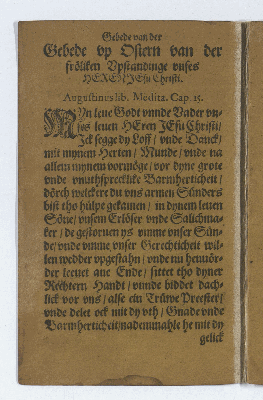 Gebede van der
Gebede vp Ostern van der
fröliken Vpstandinge vnses
HEREN JEsu Christi.
Augustinus lib. Medita. Cap. 15.
MYn leue Godt vnnde Vader vn-
ses leuen HEren JEsu Christi/
Jck segge dy Loff / vnde Danck/
mit mynem Herten/ Munde/ vnde na
allem mynem vormöge/ vor dyne grote
vnde vnuthsprecklike Barmherticheit/
dörch welckere du vns armen Sünders
bist tho hülpe gekamen / in dynem leuen
Söne/ vnsem Erlöser vnde Salichma-
ker / de gestoruen ys vmme vnser Sün-
de/ vnde vmme vnser Gerechticheit wil-
len wedder vpgestahn/ vnde nu henuör-
der leeuet ane Ende/ sittet tho dyner
Rechtern Handt / vnnde biddet dach-
lick vor vns/ alse ein Trüwe Preester/
vnde delet ock mit dy vth/ Gnade vnde
Barmherticheit/nademmahle he mit dy
gelick